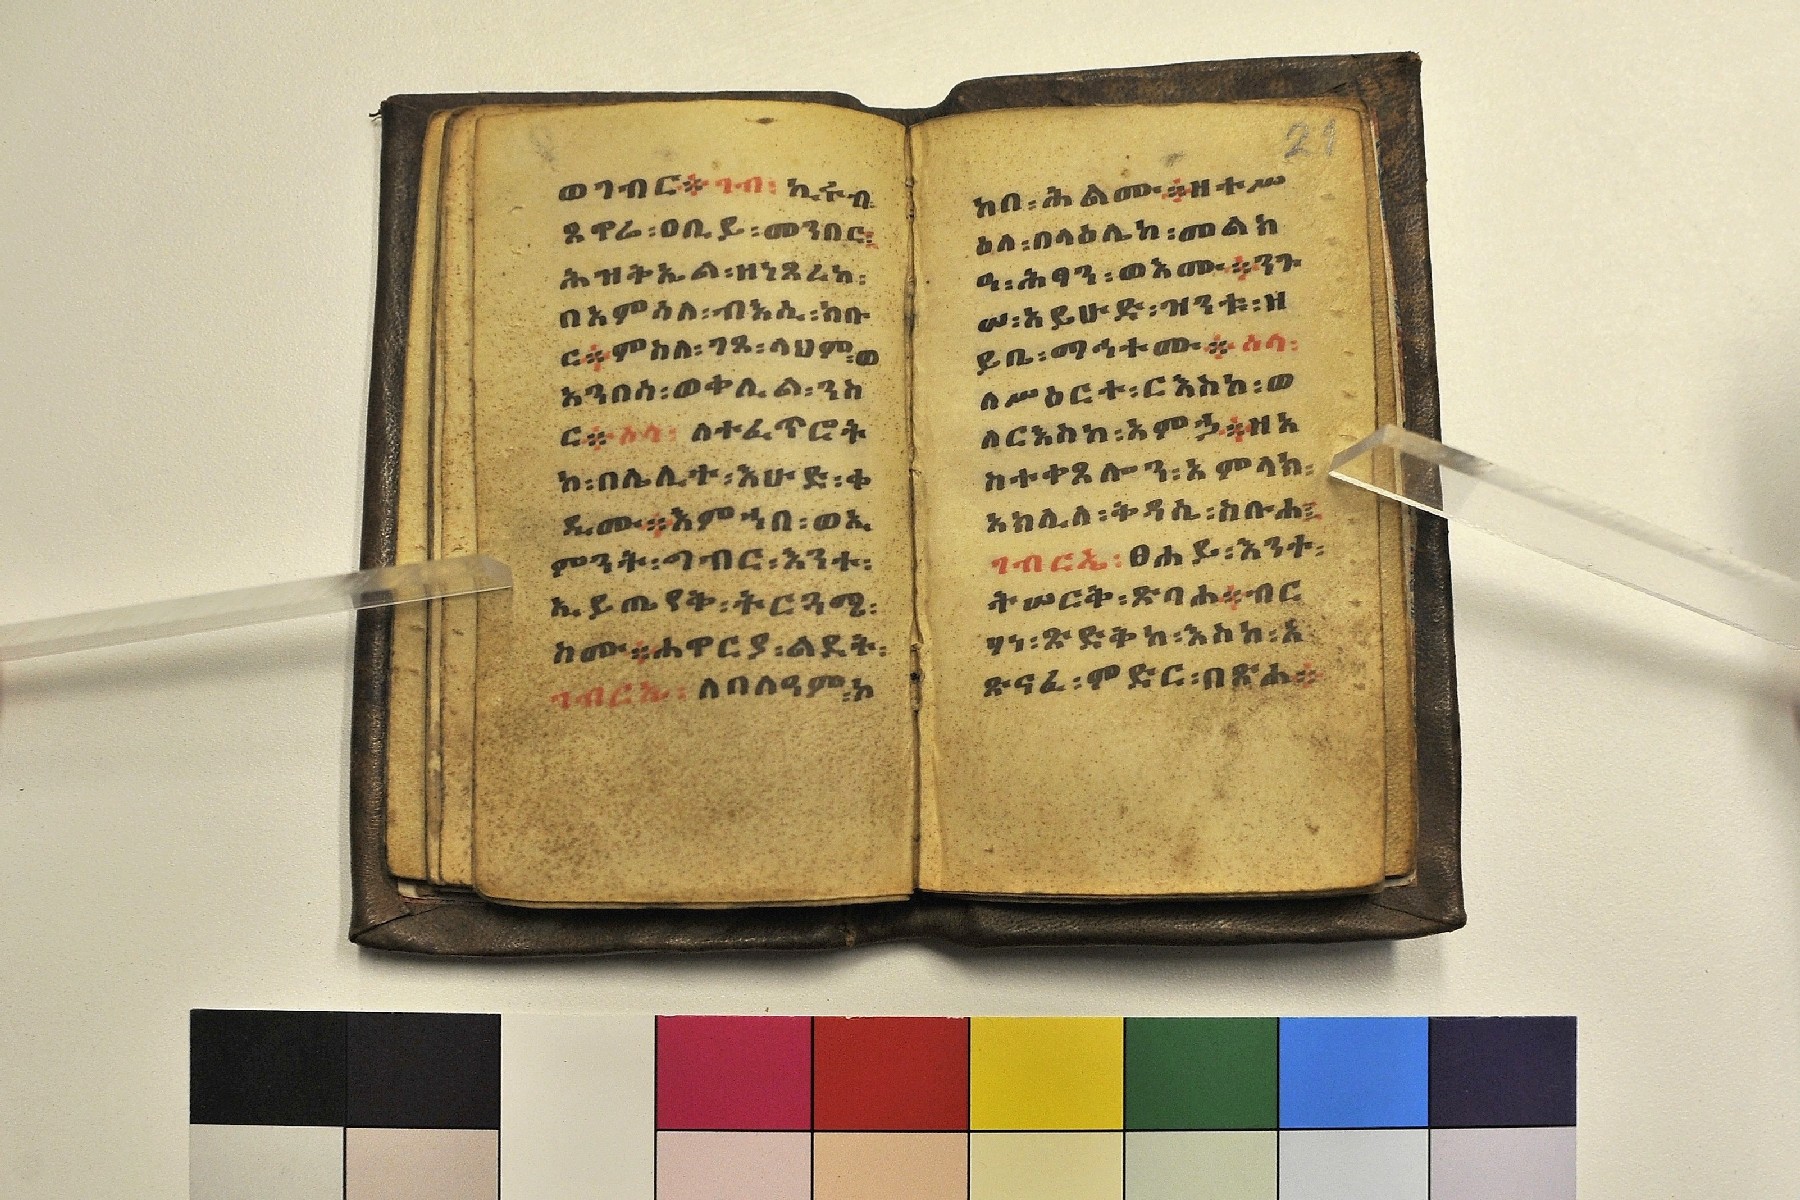 ወገብር፨ ገብ፡ ኪሩብ
ጾዋሬ፡ዐቢይ፡መንበር፡
ሕዝቅኤል፡ዘነጸረከ፡
በአምሳለ፡ብእሲ፡ከቡ
ር፨ምስለ፡ገጸ፡ላህም፡ወ
አንበሳ፡ወቀሊል፡ንስ
ር፨ሰላ፡ ለተፈጥሮት
ከ፡በሌሊተ፡እሁድ፡ቀ
ዲሙ፨እምኀበ፡ወኢ
ምንት፡ግብር፡እንተ፡
ኢይጤየቅ፡ትርጓሜ፡
ከሙ፨ሐዋርያ፡ልደት፡
ገብርኤ፡ ለባለዓም፡አ
21
ከበ፡ሕልሙ፨ዘተሥ
ዕለ፡በላዕሌከ፡መልክ
ዓ፡ሕፃን፡ወእሙ፨ንጉ
ሠ፡አይሁድ፡ዝንቱ፡ዝ
ይቤ፡ማኅተሙ፨ ሰላ፡
ለሥዕርተ፡ርእስከ፡ወ
ለርእስከ፡እምኃ፨ዘአ
ከተቀጸሎን፡አምላክ፡
አክሊለ፡ቅዳሴ፡ስቡሐ፡
ገብርኤ፡ ፀሐይ፡እንተ፡
ትሠርቅ፡ጽባሐ፨ብር
ሃነ፡ጽድቅከ፡እስከ፡አ
ጽናፈ፡ምድር፡በጽሐ፨